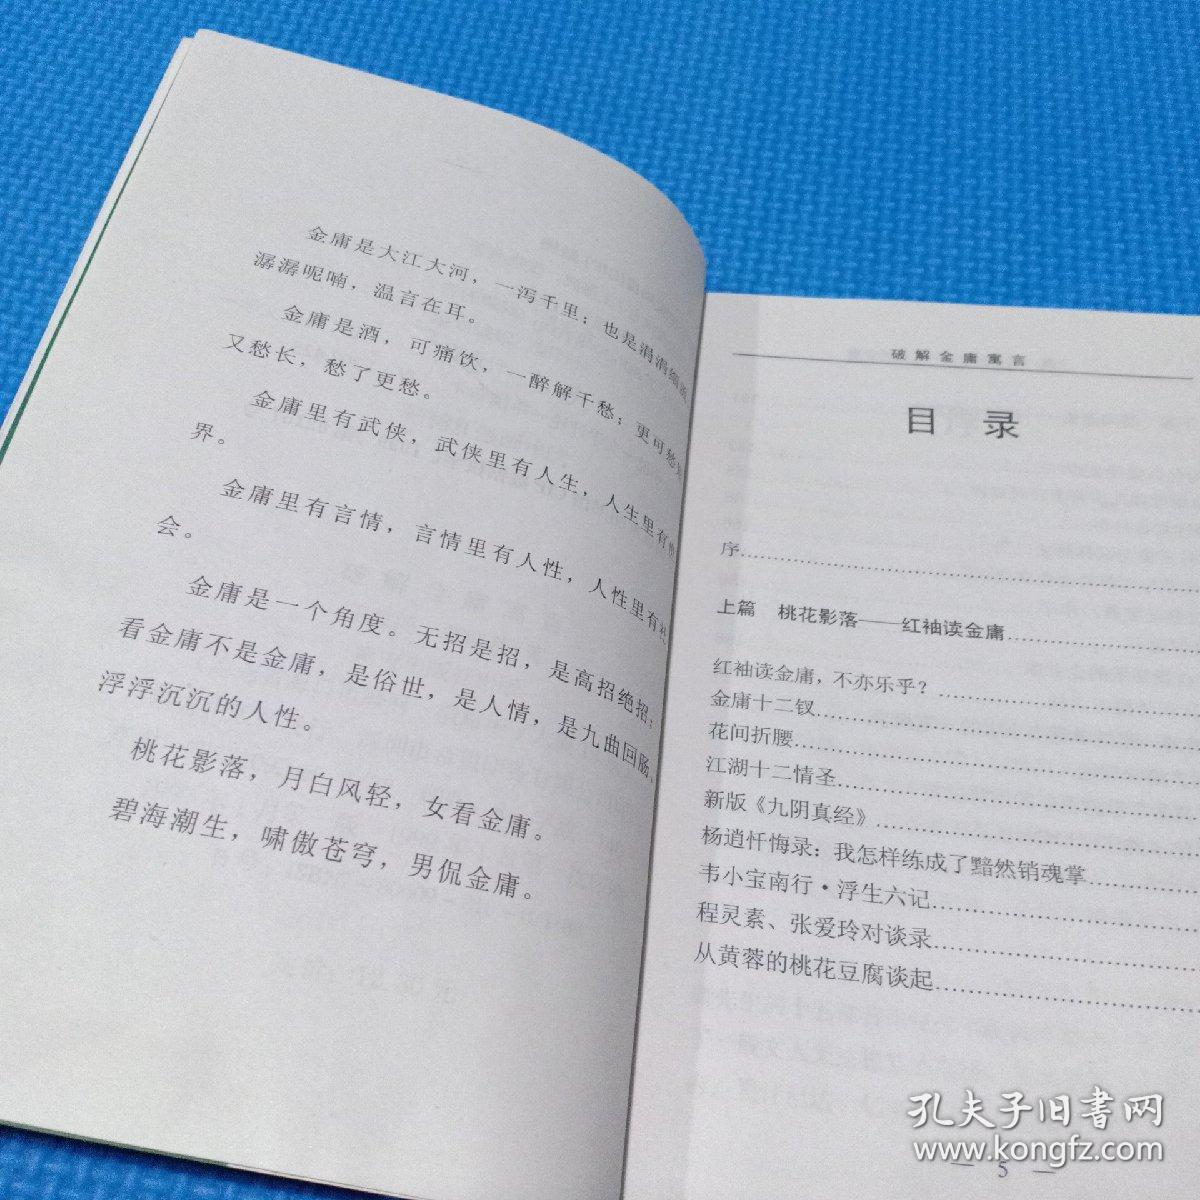 金庸是大江大河，一泻千里；也是涓涓细流
潺潺呢喃，温言在耳。
金庸是酒，可痛饮，一醉解千愁；更可愁
又愁长，愁了更愁。
金庸里有武侠，武侠里有人生，人生里有
界。
金庸里有言情，言情里有人性，人性里有社
会。
金庸是一个角度。无招是招，是高招绝招；
看金庸不是金庸，是俗世，是人情，是九曲回肠、
浮浮沉沉的人性。
桃花影落，月白风轻，女看金庸。
碧海潮生，啸傲苍穹，男侃金庸。
破解金庸寓言
目 录
序
上篇 桃花影落——红袖读金庸
红袖读金庸，不亦乐乎？
金庸十二钗
花间折腰
江湖十二情圣
新版《九阴真经》
杨逍忏悔录：我怎样练成了黯然销魂掌
韦小宝南行·浮生六记
程灵素、张爱玲对谈录
从黄蓉的桃花豆腐谈起
— 5 —
孔夫子旧书网
www.kongfz.com